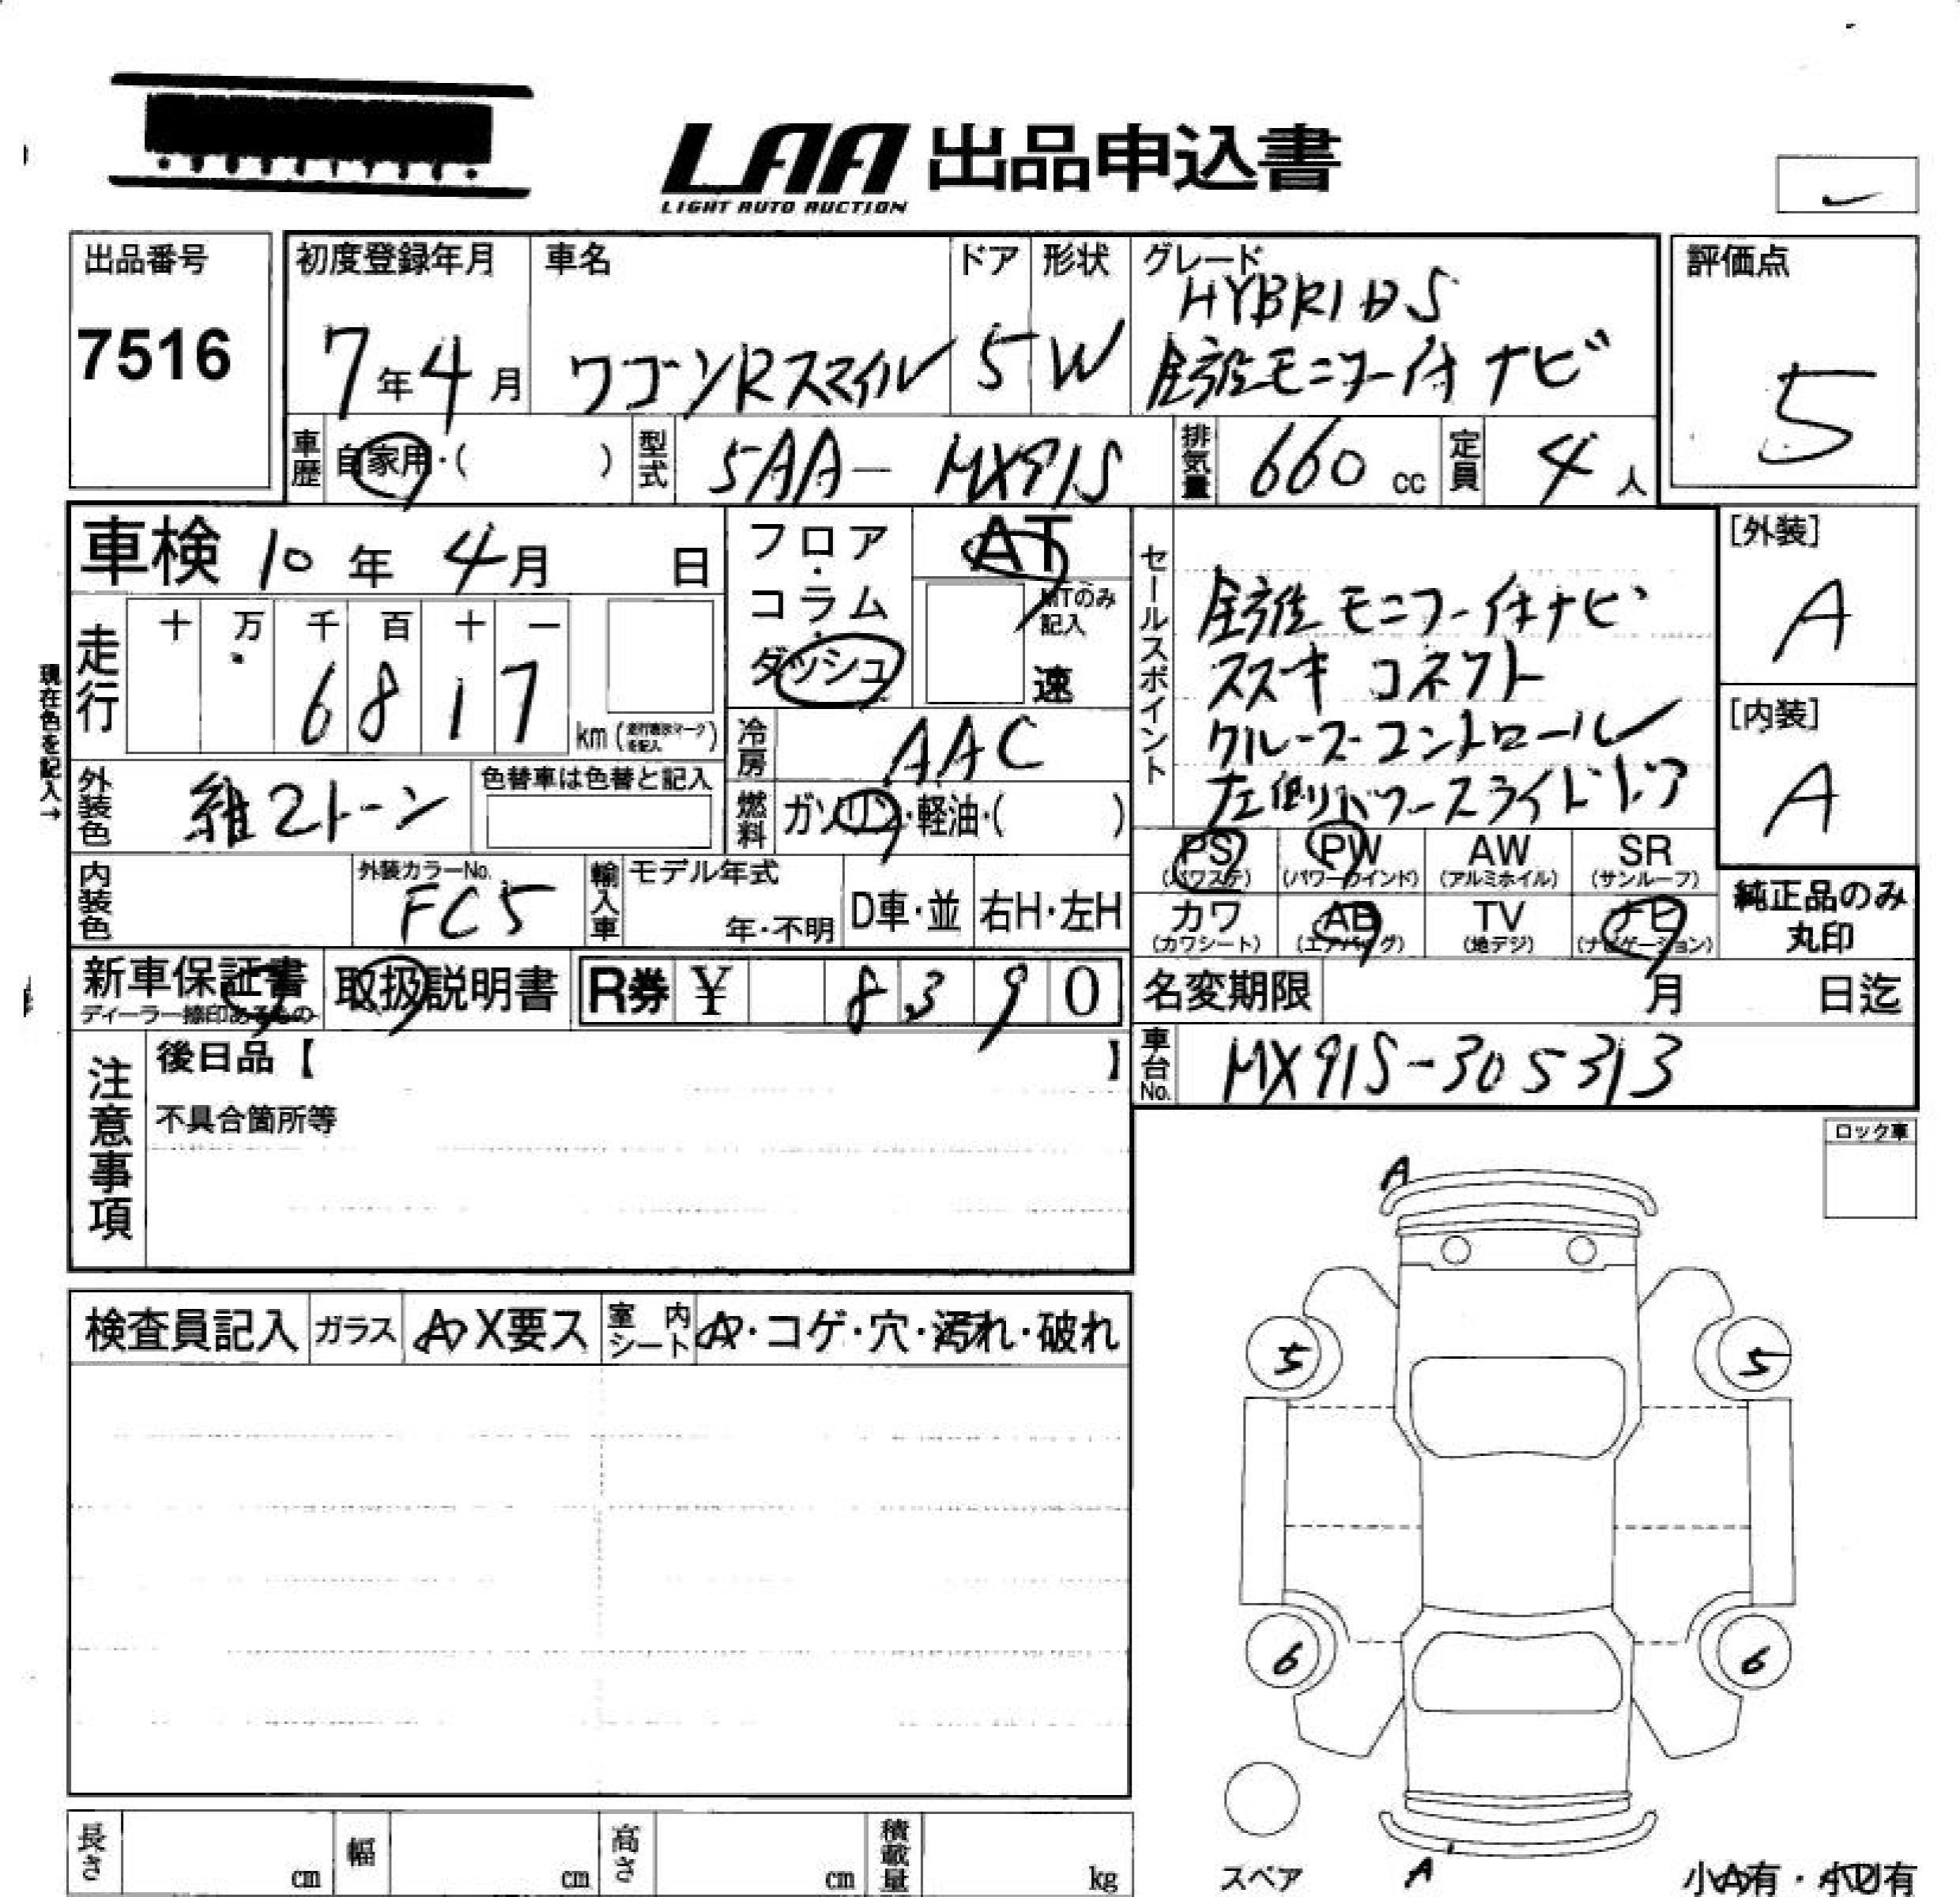 LAA 出品申込書
LIGHT AUTO AUCTION
出品番号
7516
初度登録年月
7年4月
車名
ワゴンRスマイル
ドア
5
形状
W
グレード
HYBRID S
全方位モニター付ナビ
評価点
5
車歴
自家用・( )
型式
5AA-MX91S
排気量
660 cc
定員
4人
車検 10年 4月 日
走行
十 万 千 百 十 一
6 8 1 7
km (走行表示マークを記入)
現在色を記入→
外装色
紺2トーン
色替車は色替と記入
内装色
外装カラーNo.
FC5
輸入車
モデル年式
年・不明
D車・並
右H・左H
フロア・
コラム・
ダッシュ
AT
MTのみ
記入
速
冷房
AAC
燃料
ガソリン・軽油・( )
セールスポイント
全方位モニター付ナビ
スズキ コネクト
クルーズコントロール
左側パワースライドドア
[外装]
A
[内装]
A
PS
(パワステ)
PW
(パワーウインド)
AW
(アルミホイル)
SR
(サンルーフ)
カワ
(カワシート)
AB
(エアバッグ)
TV
(地デジ)
ナビ
(ナビゲーション)
純正品のみ
丸印
新車保証書
ディーラー捺印あるもの
取扱説明書
R券 ¥ 8390
名変期限 月 日迄
車台No.
MX91S-305313
注意事項
後日品【 】
不具合箇所等
ロック車
検査員記入
ガラス
A・X要ス
室内
シート
A・コゲ・穴・汚れ・破れ
A
5
5
6
6
スペア
A
小A有・小U有
長さ cm
幅 cm
高さ cm
積載量 kg